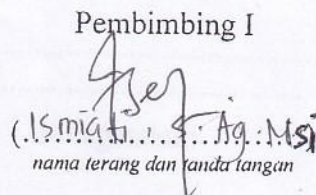 Pembimbing I
(Ismiati, S.Ag.MSi)
nama terang dan tanda tangan